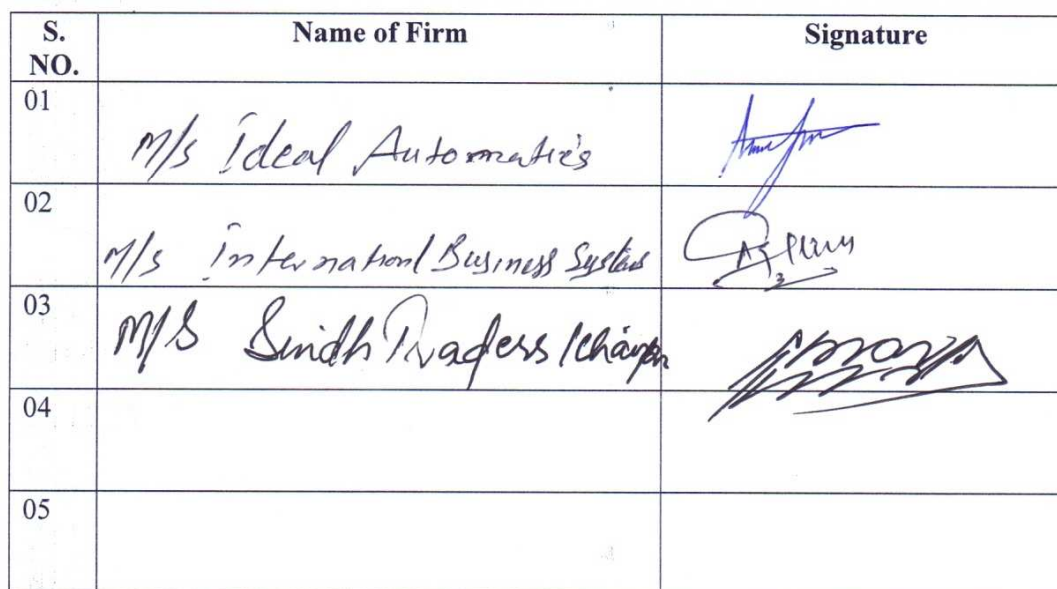 S. NO. Name of Firm Signature
01 M/s Ideal Automatics
02 M/s International Business Systems
03 M/S Sindh Traders Khairpur
04
05